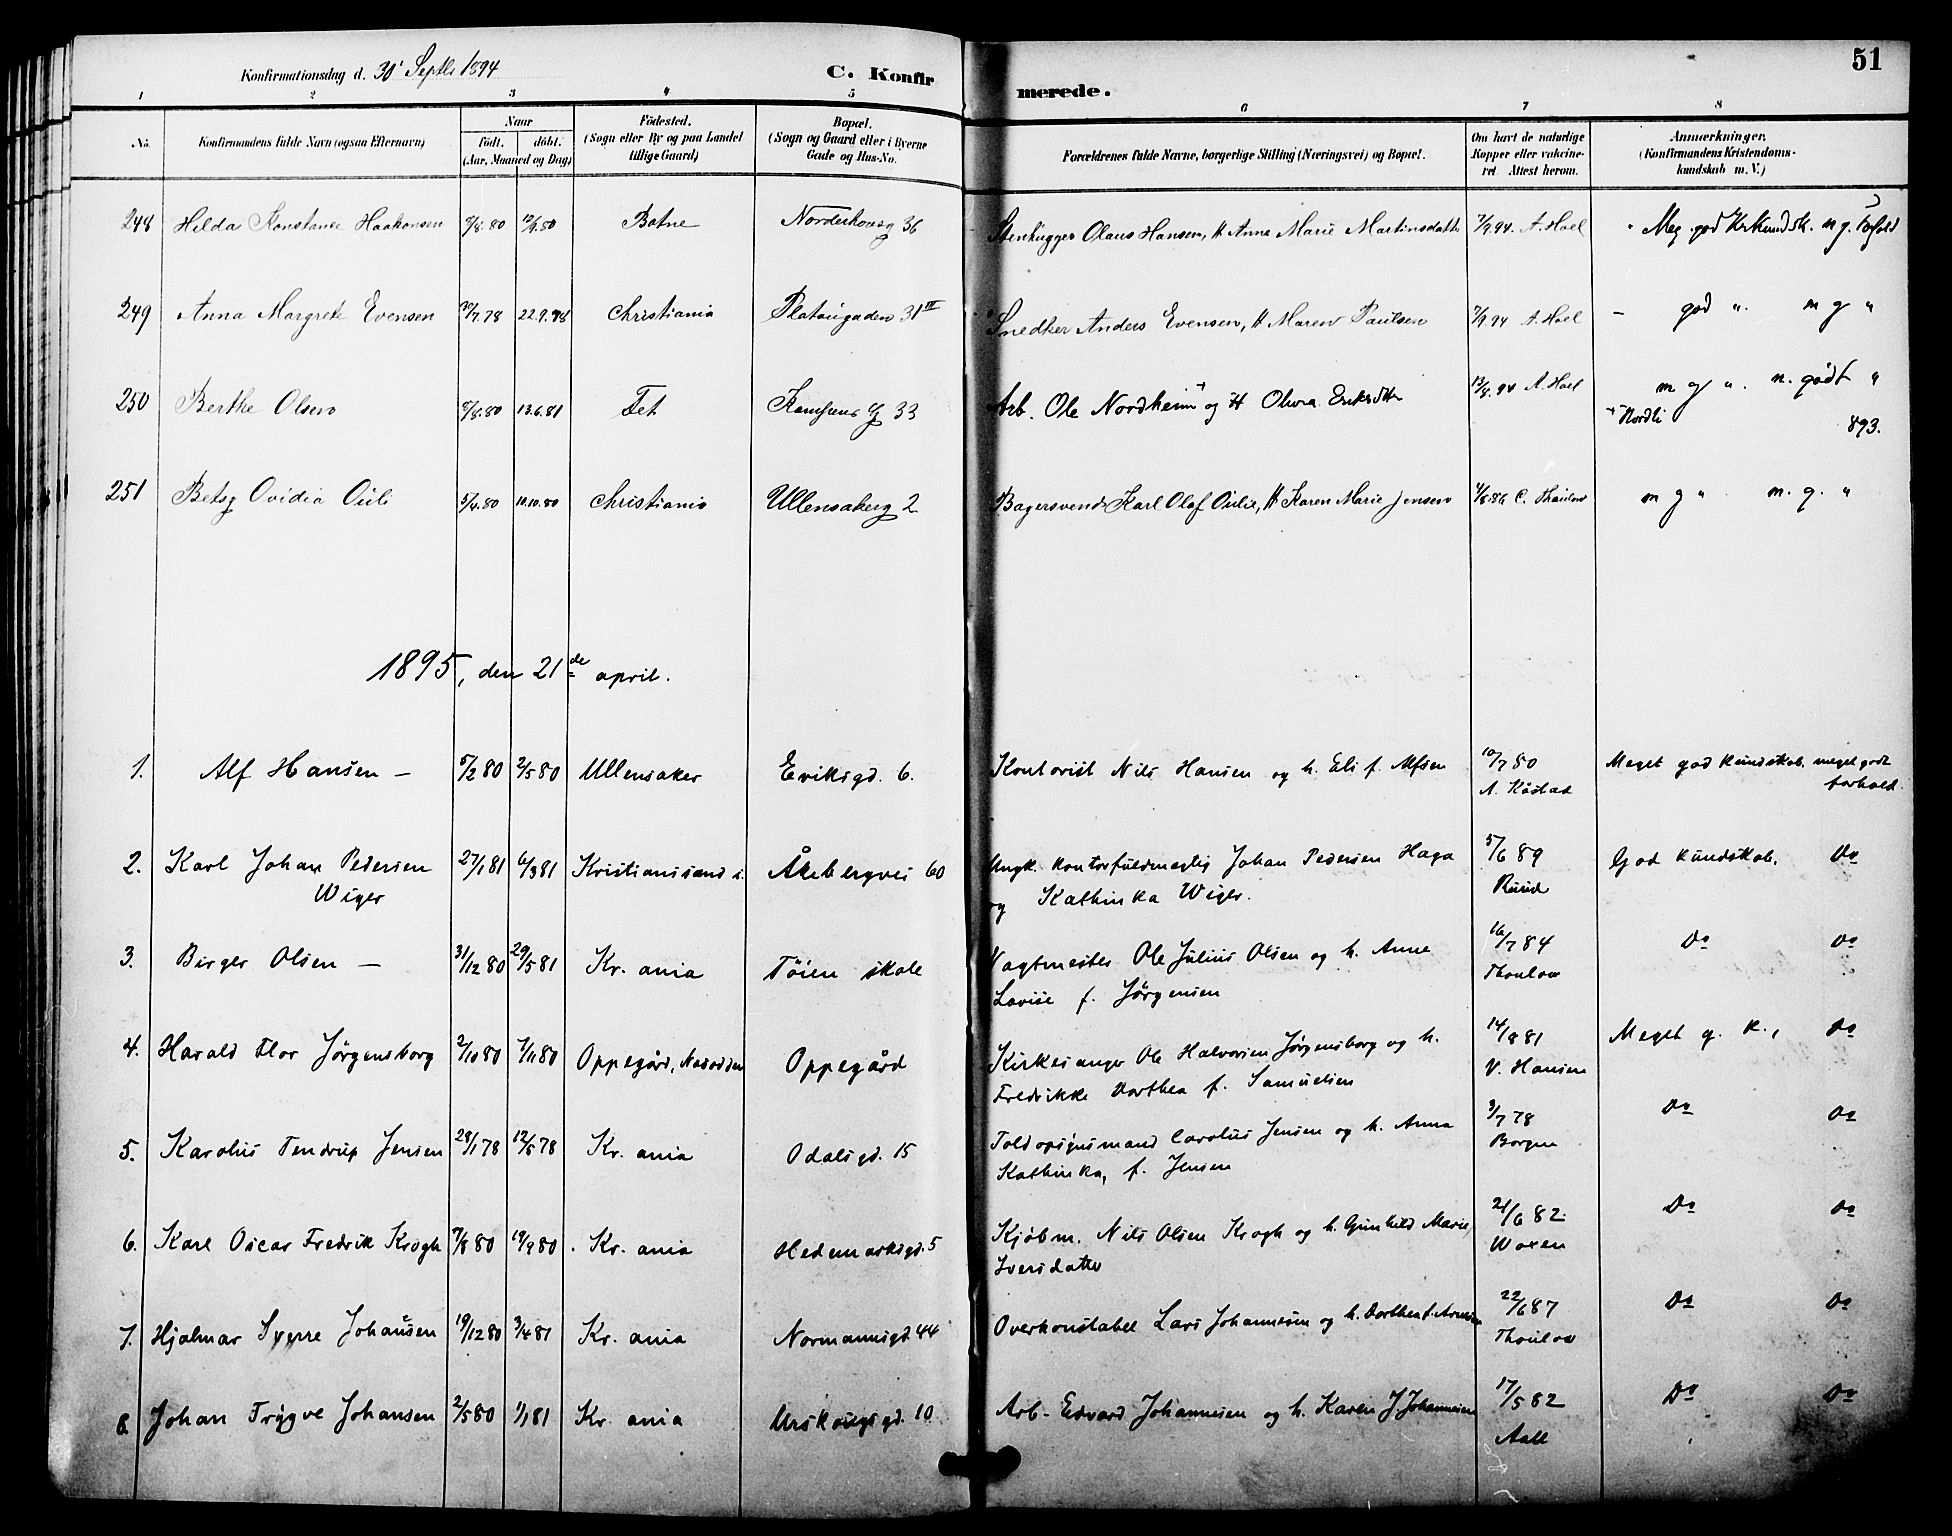 51
Konfirmationsdag d. 30' Septbr 1894
C. Konfir
merede.
1 2 3 4 5 6 7 8
No. Konfirmandens fulde Navn (ogsaa Efternavn) Naar født. døbt. (Aar, Maaned og Dag) Fødested. (Sogn eller By og paa Landet tillige Gaard) Bopæl. (Sogn og Gaard eller i Byerne Gade og Hus-No. Forældrenes fulde Navne, borgerlige Stilling (Næringsvei) og Bopæl. Om havt de naturlige Kopper eller vakcineret. Attest herom. Anmærkninger. (Konfirmandens Kristendomskundskab m. V.)
248 Hilda Konstance Haakonsen 12/9.80 Botne Norderhovsg 36 Stenhugger Olaus Hansen, H Anna Marie Martinsdatter 7/9.94. A. Hoel Meg. god Krkundsk. m g. forhold
249 Anna Margrete Evensen 30/7.78 22.9.78 Christiania Platougaden 31 II Snedker Anders Evensen, H Maren Paulsen 7/9.94 A. Hoel god " m g "
250 Berthe Olsen 8/8.80 13.6.81 Fet 33 Arb. Ole Nordheim + og H Olava Eriksdtr 13/8.94 A. Hoel m g " n. godt "
+ Nordli 893.
251 Betsy Ovidia Ouli 5/4.80 10.10.80 Christiania Ullensakerg 2 Bagersvend Karl Olaf Oulie, H Karen Marie Jensen 4/8.86 C. Thaulow m g " m. g. "
1895, den 21de april.
1. Alf Hansen – 5/2 80 2/5 80 Ullensaker Eviksgd. 6. Kontorist Nils Hansen og h. Eli f. Alfsen 10/7 80
A. Kåstad Meget god kundskab, meget godt forhold.
2. Karl Johan Pedersen
Wiger 27/1 81 6/3 81 Kristianssand s. Åkebergvei 60 Ungk. kontorfuldmægtig Johan Pedersen Haga
og Kathinka Wiger. 5/6 89
Ruud God kundskab, Do
3. Birger Olsen – 31/12 80 29/5 81 Kr. ania Tøien skole Vagtmester Ole Julius Olsen og h. Anne
Lovise f. Jørgensen 16/7 84
Thoulow Do Do
4. Harald Flor Jørgensborg 2/10 80 7/11 80 Oppegård, Nesodden Oppegård Kirkesanger Ole Halvorsen Jørgensborg og h.
Fredrikke Dorthea f. Samuelsen 14/8 81
V. Hansen Meget g. K., Do
5. Karolus Tendrup Jensen 28/1 78 12/5 78 Kr. ania Odalsgd. 15 Toldopsynsmand Carolus Jensen og h. Anna
Kathinka, f. Jensen 3/7 78
Borgen Do Do
6. Karl Oscar Fredrik Krogh 7/8 80 19/9 80 Kr. ania Hedemarksgd. 5 Kjøbm. Nils Olsen Krogh og h. Gunhild Marie
Iversdatter 21/6 82
Woxen Do Do
7. Hjalmar Sygne Johansen 19/12 80 3/4 81 Kr. ania Normannsgd 44 Overkonstabel Lars Johannesen og h. Dorthea f. Arnesen 22/6 87
Thoulow Do Do
8. Johan Trygve Johansen 2/5 80 1/1 81 Kr. ania Urskougsgd. 10 Arb. Edvard Johannesen og h. Karen J. Johannesen 17/5 82
Aall Do Do